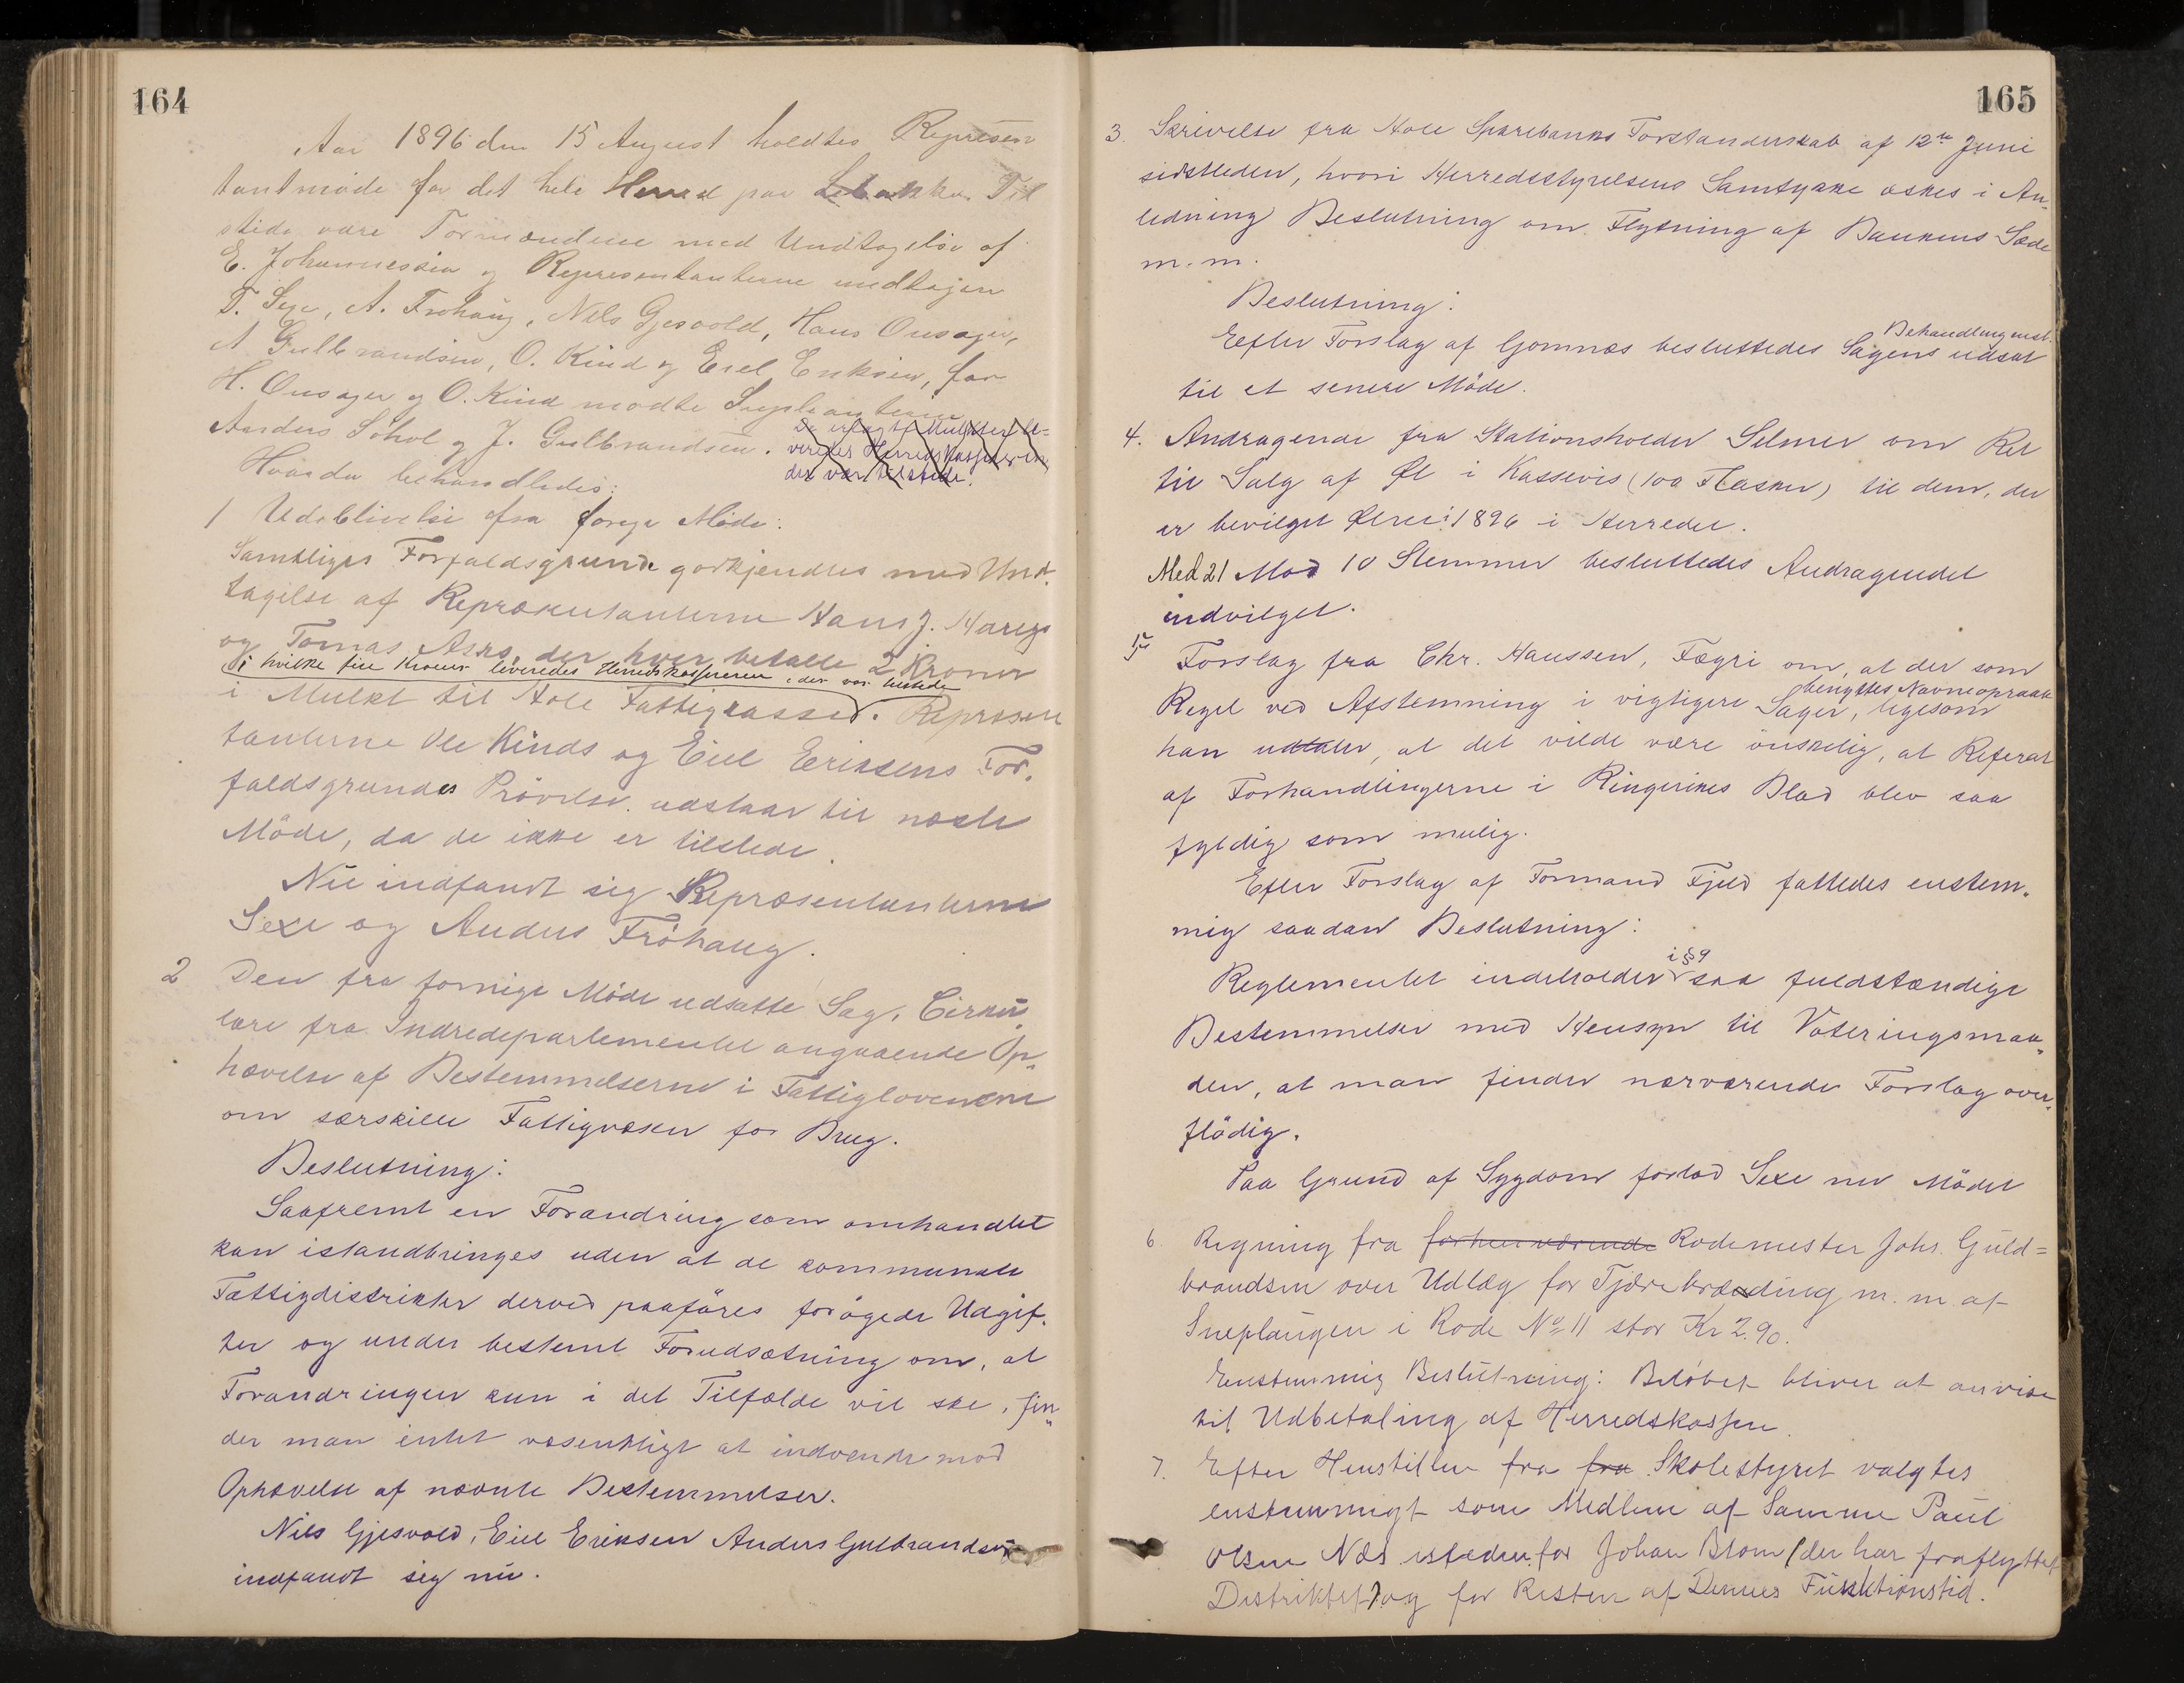 164
Aar 1896 den 15 August holdtes Represen
tantmøde for det hele Herred paa Libakke. Til
stede vare Formændene med Undtagelse af
E. Johannessen og Representanterne undtagen
T. Sexe, A. Frøhaug, Nils Gjesvold, Hans Onsager,
A Gulbrandsen, O. Kind og Eiel Eriksen, for
H. Onsager og O. Kind mødte Suppleanterne
Anders Søhol og J. Gulbrandsen.
De erlagte Mulkter le=
veredes Herredskassereren
der var tilstede.
Hvorda behandledes:
1 Udeblivelse fra forige Møde:
Samtliges Forfaldsgrunde godkjendtes med Und-
tagelse af Repræsentanterne Hans J. Hareys
og Tomas Ask, der hver betalte 2 Kroner
i hvilke fire Kroner leveredes Herredskassereren, der var tilstede
i Mulkt til Hole Fattigkasse. Repræsen
tanterne Ole Kinds og Eiel Eriksens For-
faldsgrundes Prøvelse udstaar til næste
Møde, da de ikke er tilstede.
Nu indfandt sig Repræsentanterne
Sexe og Anders Frøhaug.
2 Den fra forrige Møde udsatte Sag, Cirku
lære fra Indredepartementet angaaende Op-
hævelse af Bestemmelserne i Fattiglovene
om særskilte Fattigvæsen for Brug.
Beslutning:
Saafremt en Forandring som omhandlet
kan istandbringes uden at de kommunale
Fattigdistrikter derved paaføres forøgede Udgif-
ter og under bestemt Forudsætning om, at
Forandringen kun i det Tilfælde vil ske, fin-
der man intet væsentligt at indvende mod
Ophævelse af nævnte Bestemmelser.
Nils Gjesvold, Eiel Eriksen Anders Gulbrandsen
indfandt sig nu.
165
3. Skrivelse fra Hole Sparebanks Forstanderskab af 12te Juni
sidstleden, hvori Herredsstyrelsens Samtykke æskes i An-
ledning Beslutning om Flytning af Bankens Sæde
m. m.
Beslutning:
Behandling
Efter Forslag af Gomnæs besluttedes Sagens udsat
til et senere Møde.
4. Andragende fra Stationsholder Selmer om Ret
til Salg af Øl i Kassevis (100 Flasker) til dem, der
er bevilget Øl 1896 i Herredet.
Med 21 Mod 10 Stemmer besluttedes Andragendet
indvilget.
5 Forslag fra Chr. Haussen, Fægri om, at der som
benyttes Navneopraab
Regel ved Afstemning i vigtigere Sager, ligesom
han udtaler, at det vilde være ønskelig, at Referat
af Forhandlingerne i Ringerikes Blad blev saa
fyldig som mulig.
Efter Forslag af Formand Fjeld fattedes enstem-
mig saadan Beslutning:
i §9
Reglementet indeholder saa fuldstændige
Bestemmelser med Hensyn til Voteringsmaa-
den, at man finder nærværende Forslag over-
flødig.
Paa Grund af Sygdom forlod Sexe nu Mødet
6. Regning fra forhenværende Rodemester Johs. Guld=
brandsen over Udlæg for Tjærebræding m. m. af
Sneplaugen i Rode No 11 stor Kr 2.90.
Enstemmig Beslutning: Beløbet bliver at anvise
til Udbetaling af Herredskassen.
7. Efter Henstillen fra fra Skolestyret valgtes
enstemmigt som Medlem af Samme Paul
Olsen Næs istedenfor Johan Blom (der har fraflyttet
Distriktet) og for Resten af Dennes Funktionstid.